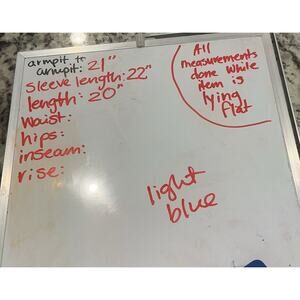 armpit to
armpit: 21"
sleeve length: 22"
length: 20"
waist:
hips:
inseam:
rise:
All
measurements
done while
item is
lying
flat
light
blue